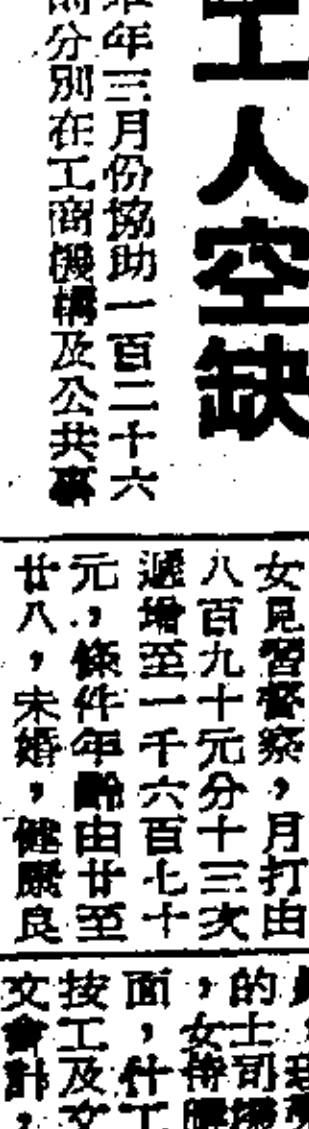 工人空缺
年三月份協助一百二十六
分別在工商機構及公共事
女見習督察，月打由
八百九十元分十三次
遞增至一千六百七十
元，條件年齡由廿至
廿八，未婚，健康良
的士司
，女侍
面，什工
按工及文
文會計，